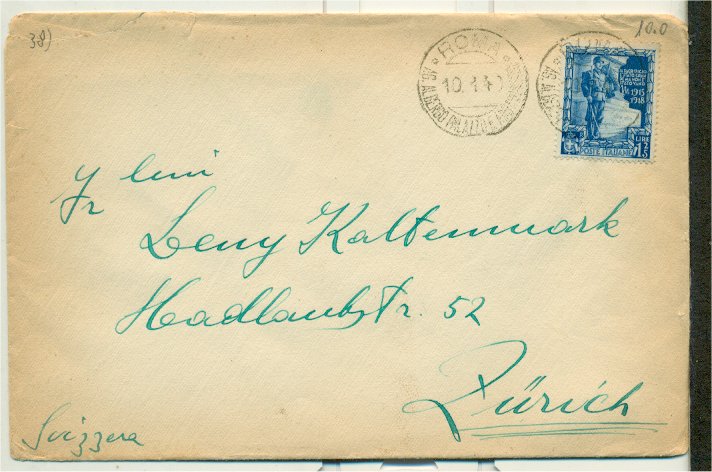 38)
10.0
ROMA
10.1.40
AG. ALBERGO PALAZZO E AMBASC
1915
1918
LIRE
POSTE ITALIANE
1,25
Leny Kaltenmark
Hadlaubstr. 52
Zürich
Svizzera